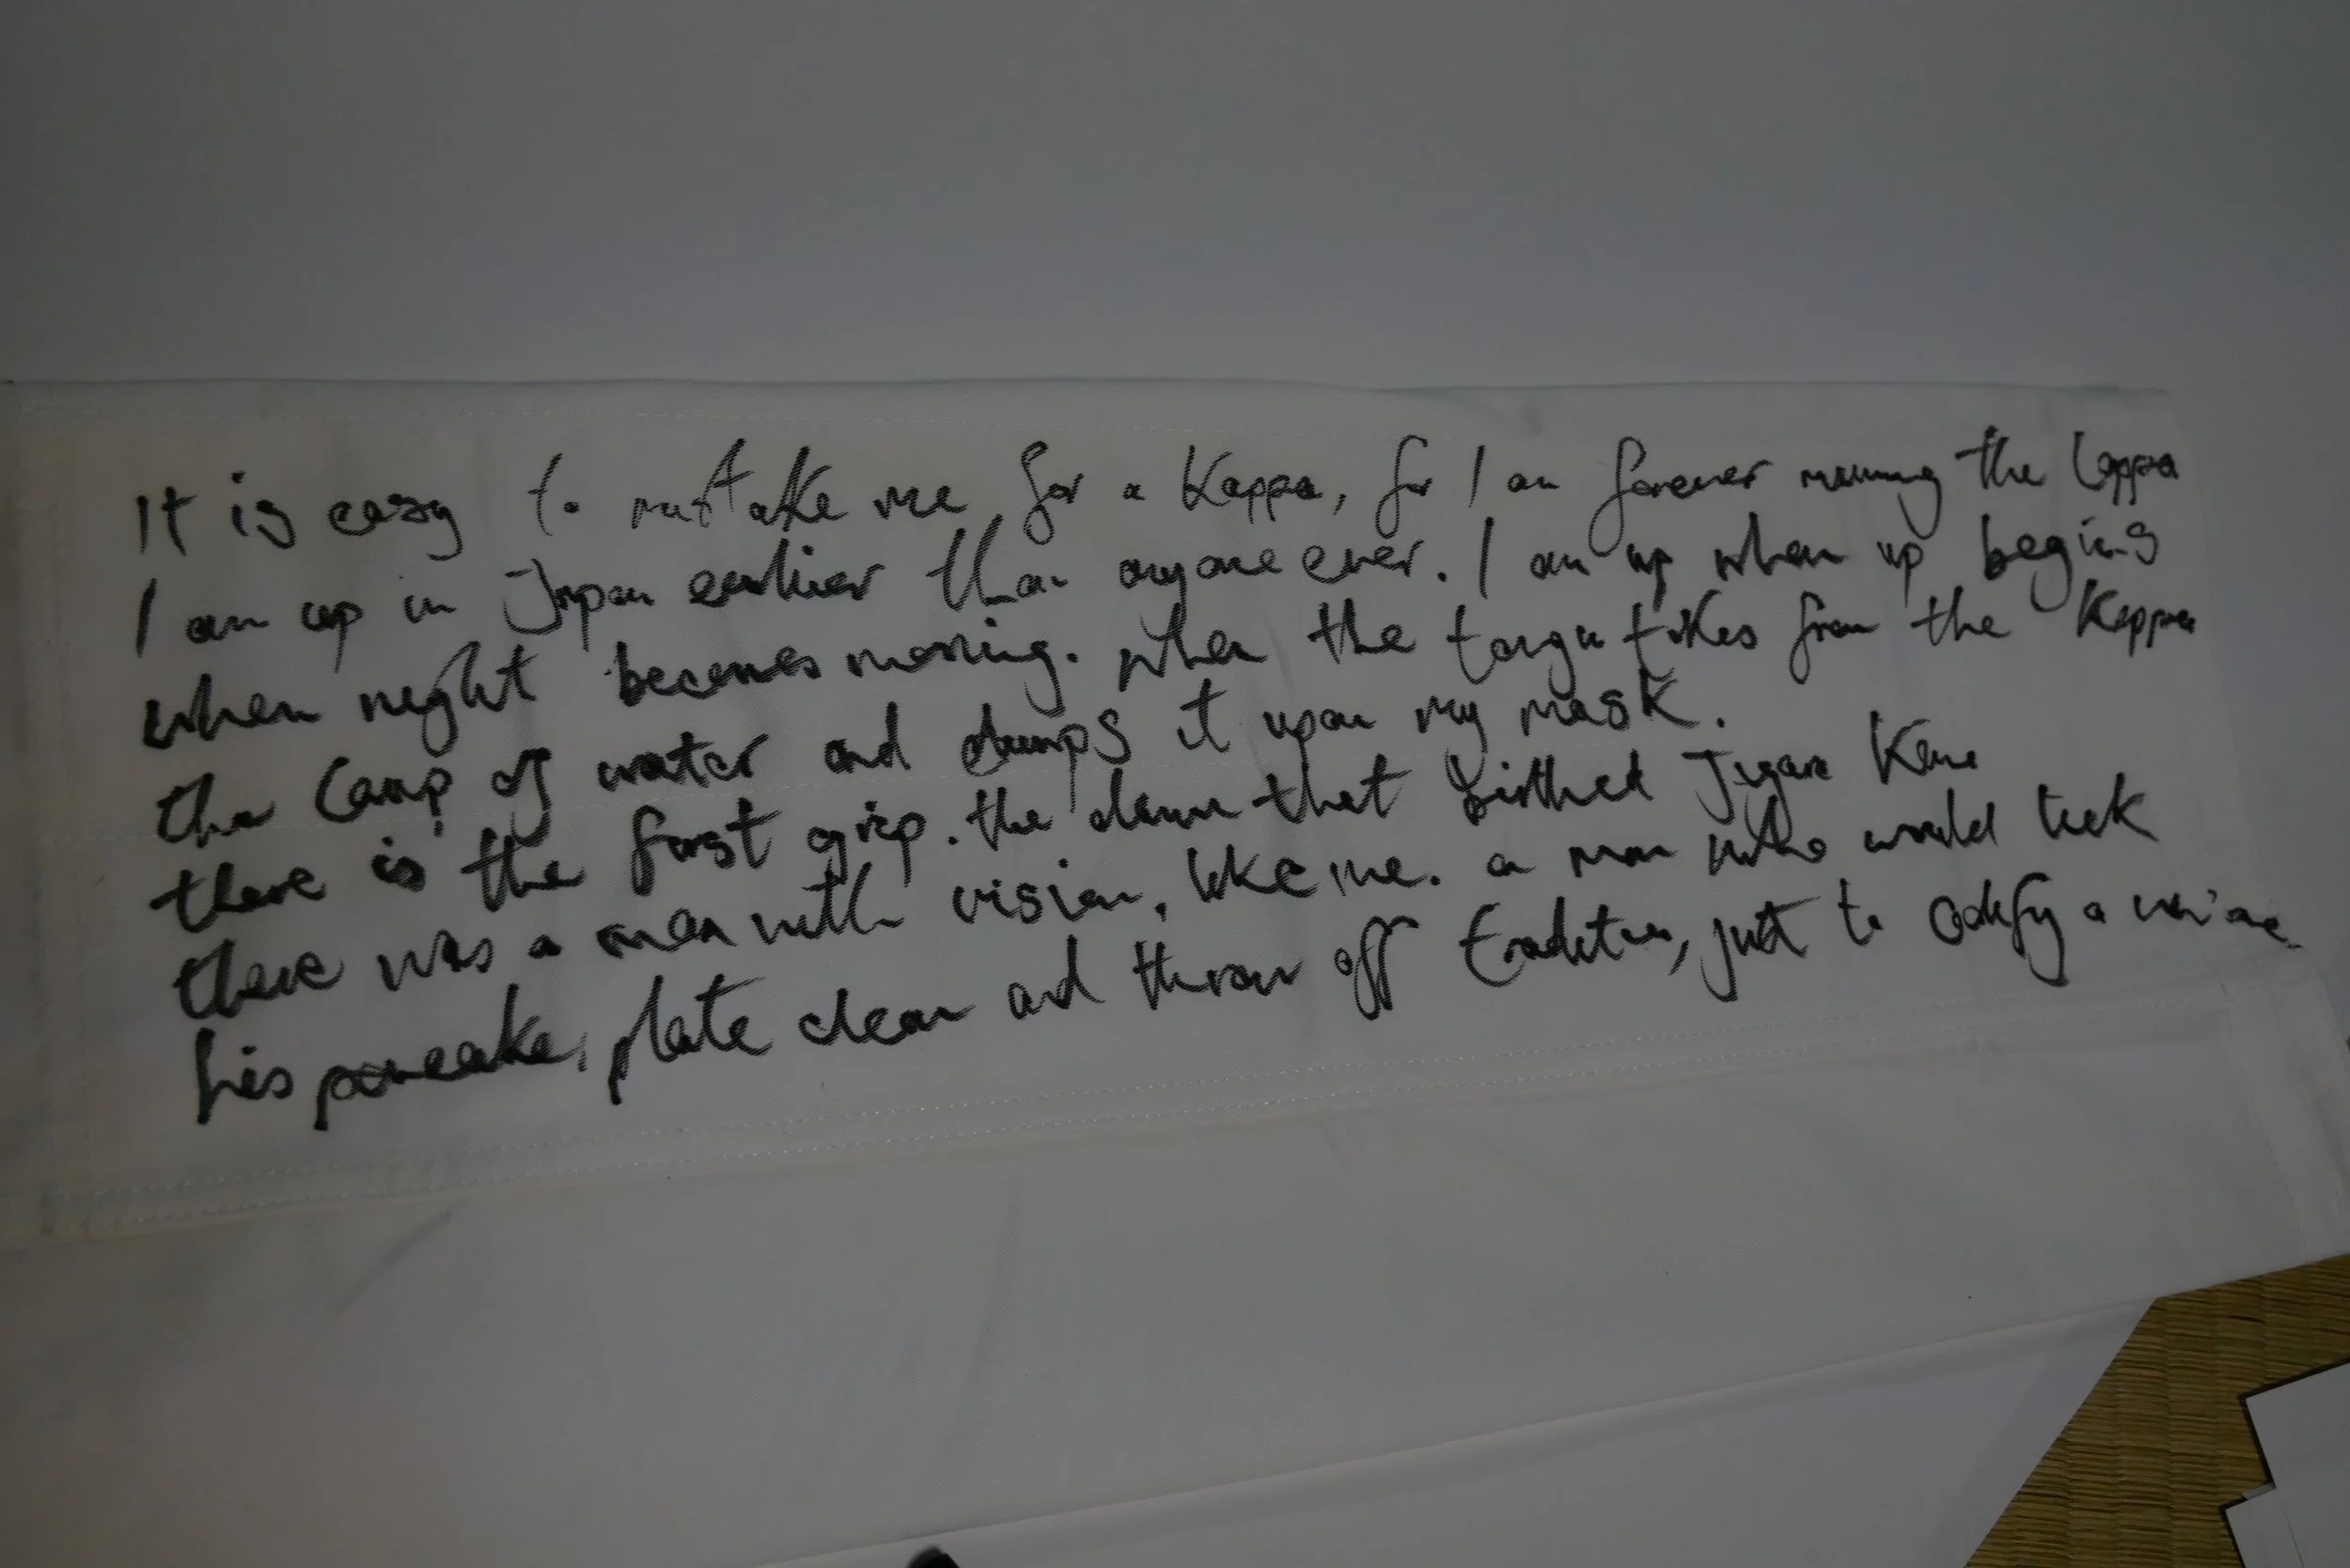 It is easy to mistake me for a Kappa, for I am forever running the Cappa
I am up in Japan earlier than anyone ever. I am up when up begins
when night becomes morning. when the tengu takes from the Kappa
the lamp of water and dumps it upon my mask.
there is the first grip. the dawn that birthed Jigoro Kano
there was a man with vision, like me. a man who would lick
his pancake plate clean and throw off tradition, just to codify a